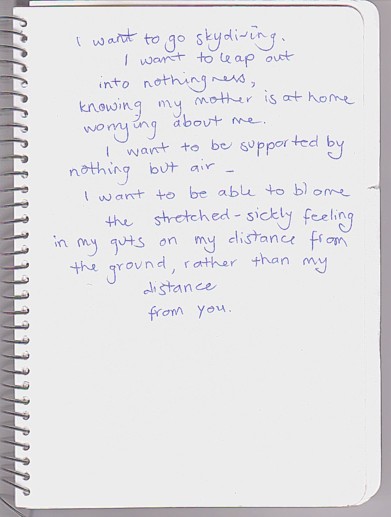 I want to go skydiving.
I want to leap out
into nothingness,
knowing my mother is at home
worrying about me.
I want to be supported by
nothing but air –
I want to be able to blame
the stretched-sickly feeling
in my guts on my distance from
the ground, rather than my
distance
from you.